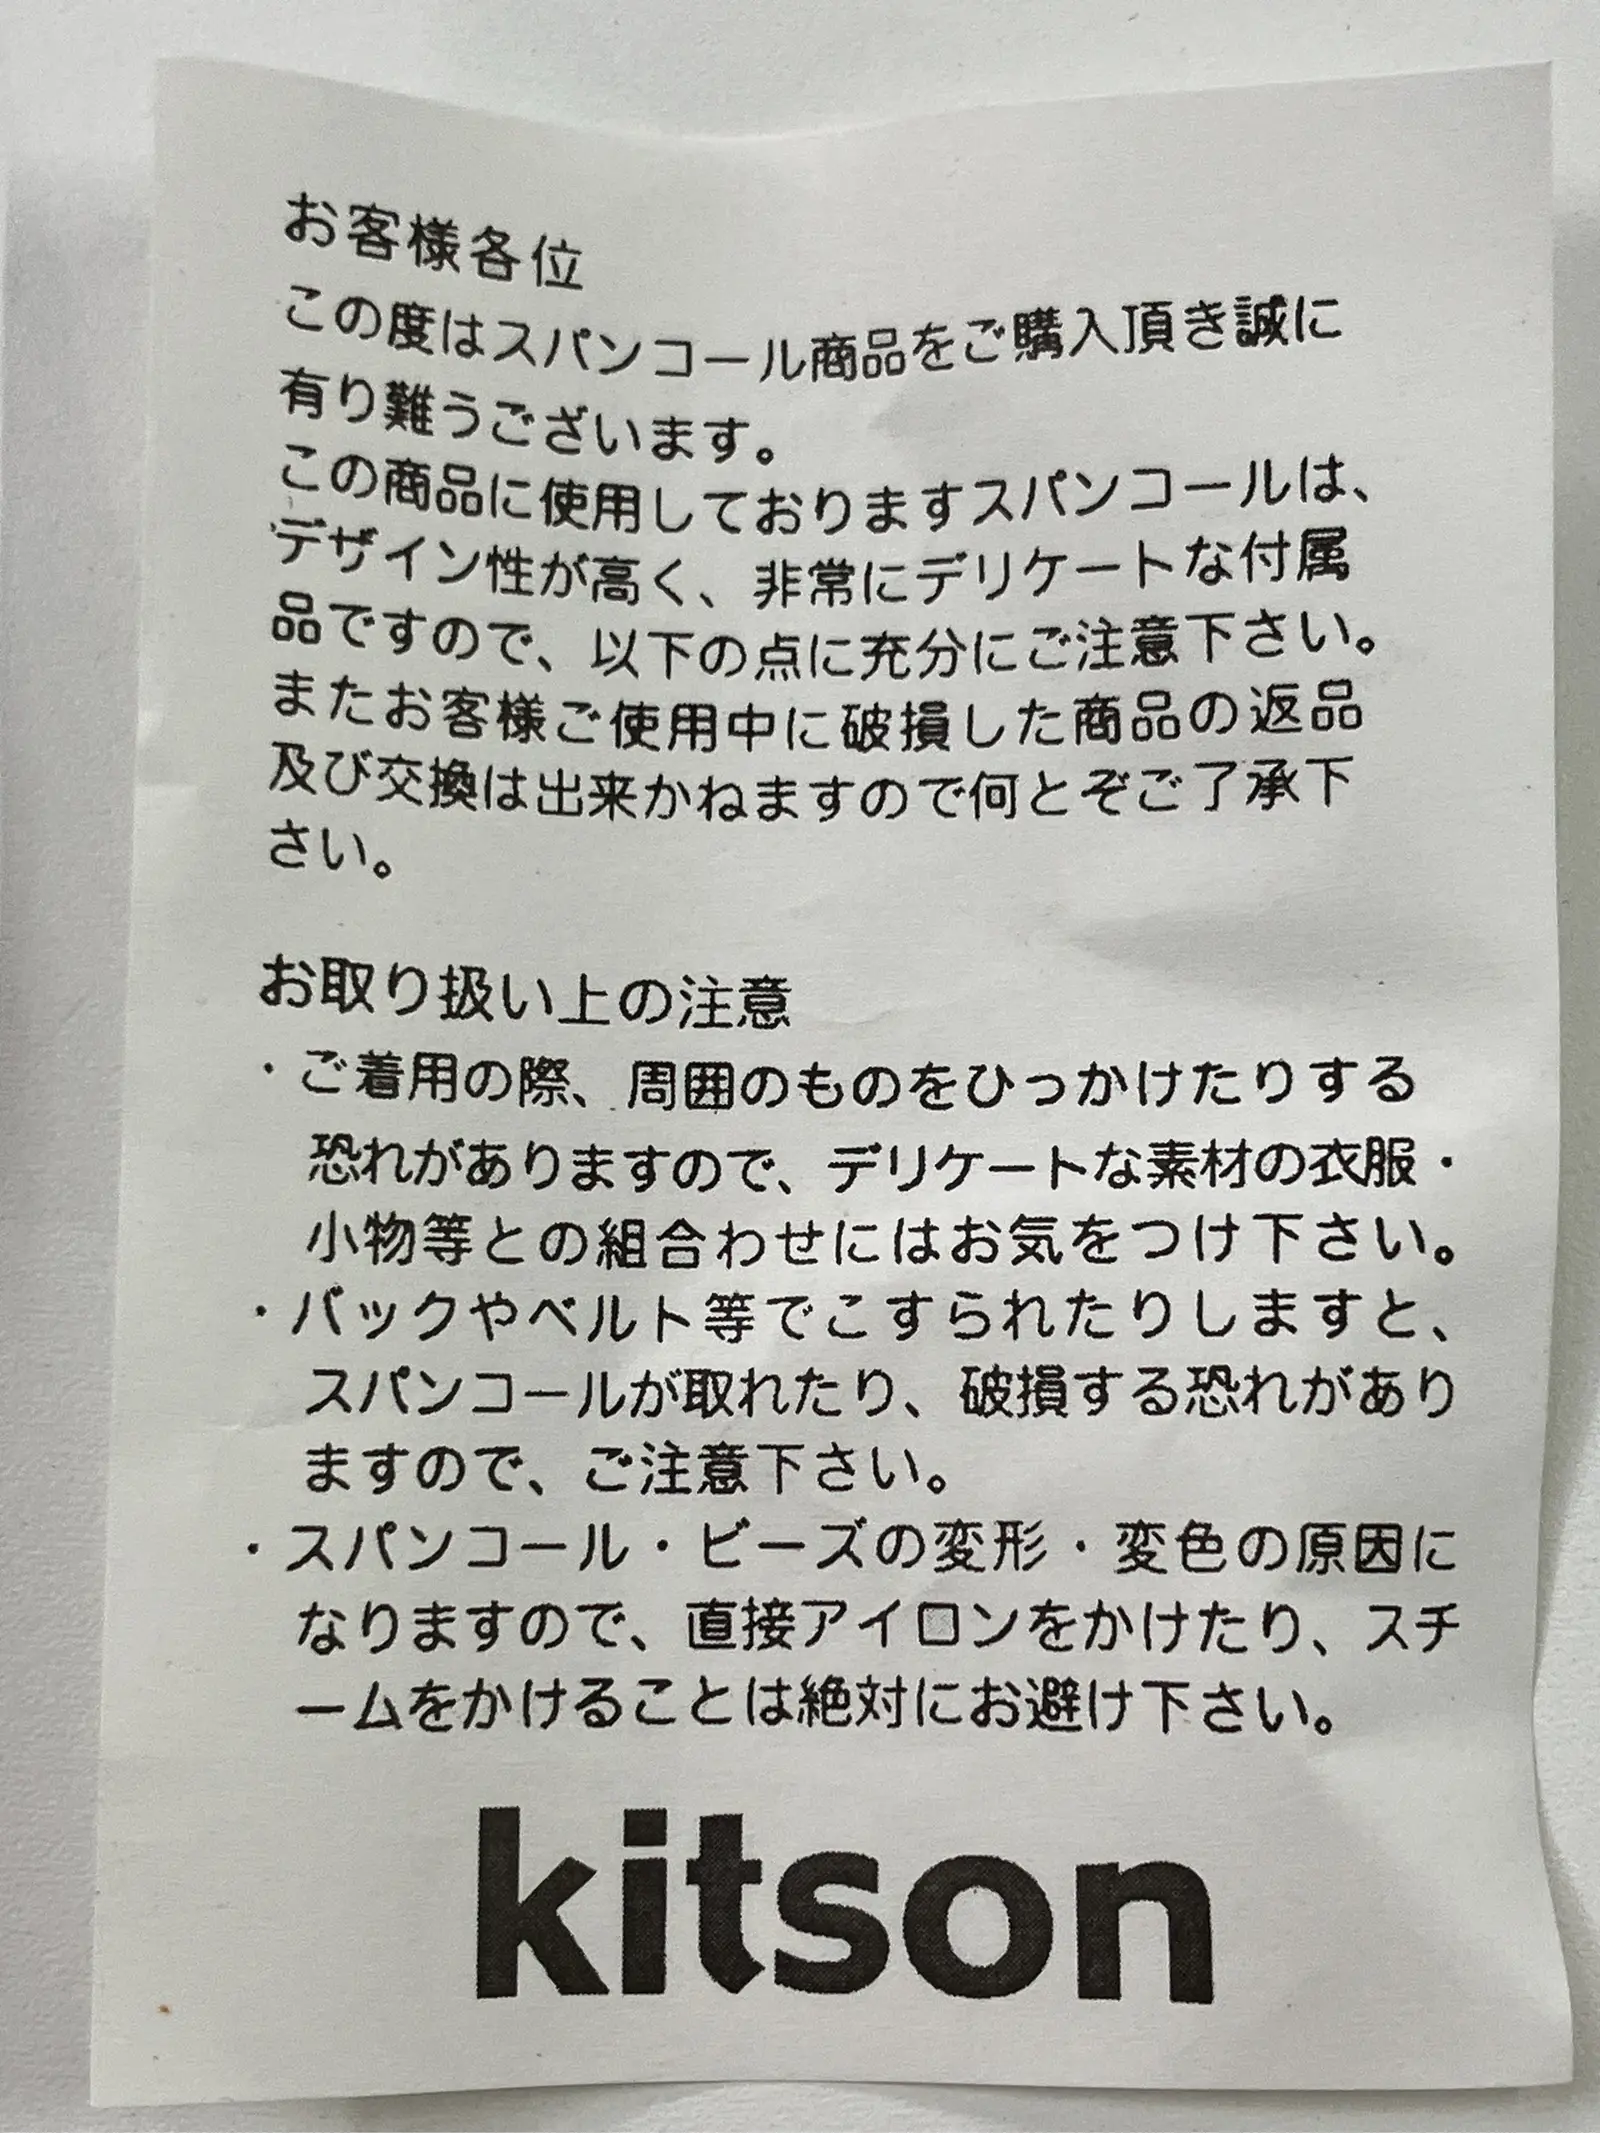 お客様各位
この度はスパンコール商品をご購入頂き誠に
有り難うございます。
この商品に使用しておりますスパンコールは、
デザイン性が高く、非常にデリケートな付属
品ですので、以下の点に充分にご注意下さい。
またお客様ご使用中に破損した商品の返品
及び交換は出来かねますので何とぞご了承下
さい。
お取り扱い上の注意
・ご着用の際、周囲のものをひっかけたりする
恐れがありますので、デリケートな素材の衣服・
小物等との組合わせにはお気をつけ下さい。
・バックやベルト等でこすられたりしますと、
スパンコールが取れたり、破損する恐れがあり
ますので、ご注意下さい。
・スパンコール・ビーズの変形・変色の原因に
なりますので、直接アイロンをかけたり、スチ
ームをかけることは絶対にお避け下さい。
kitson